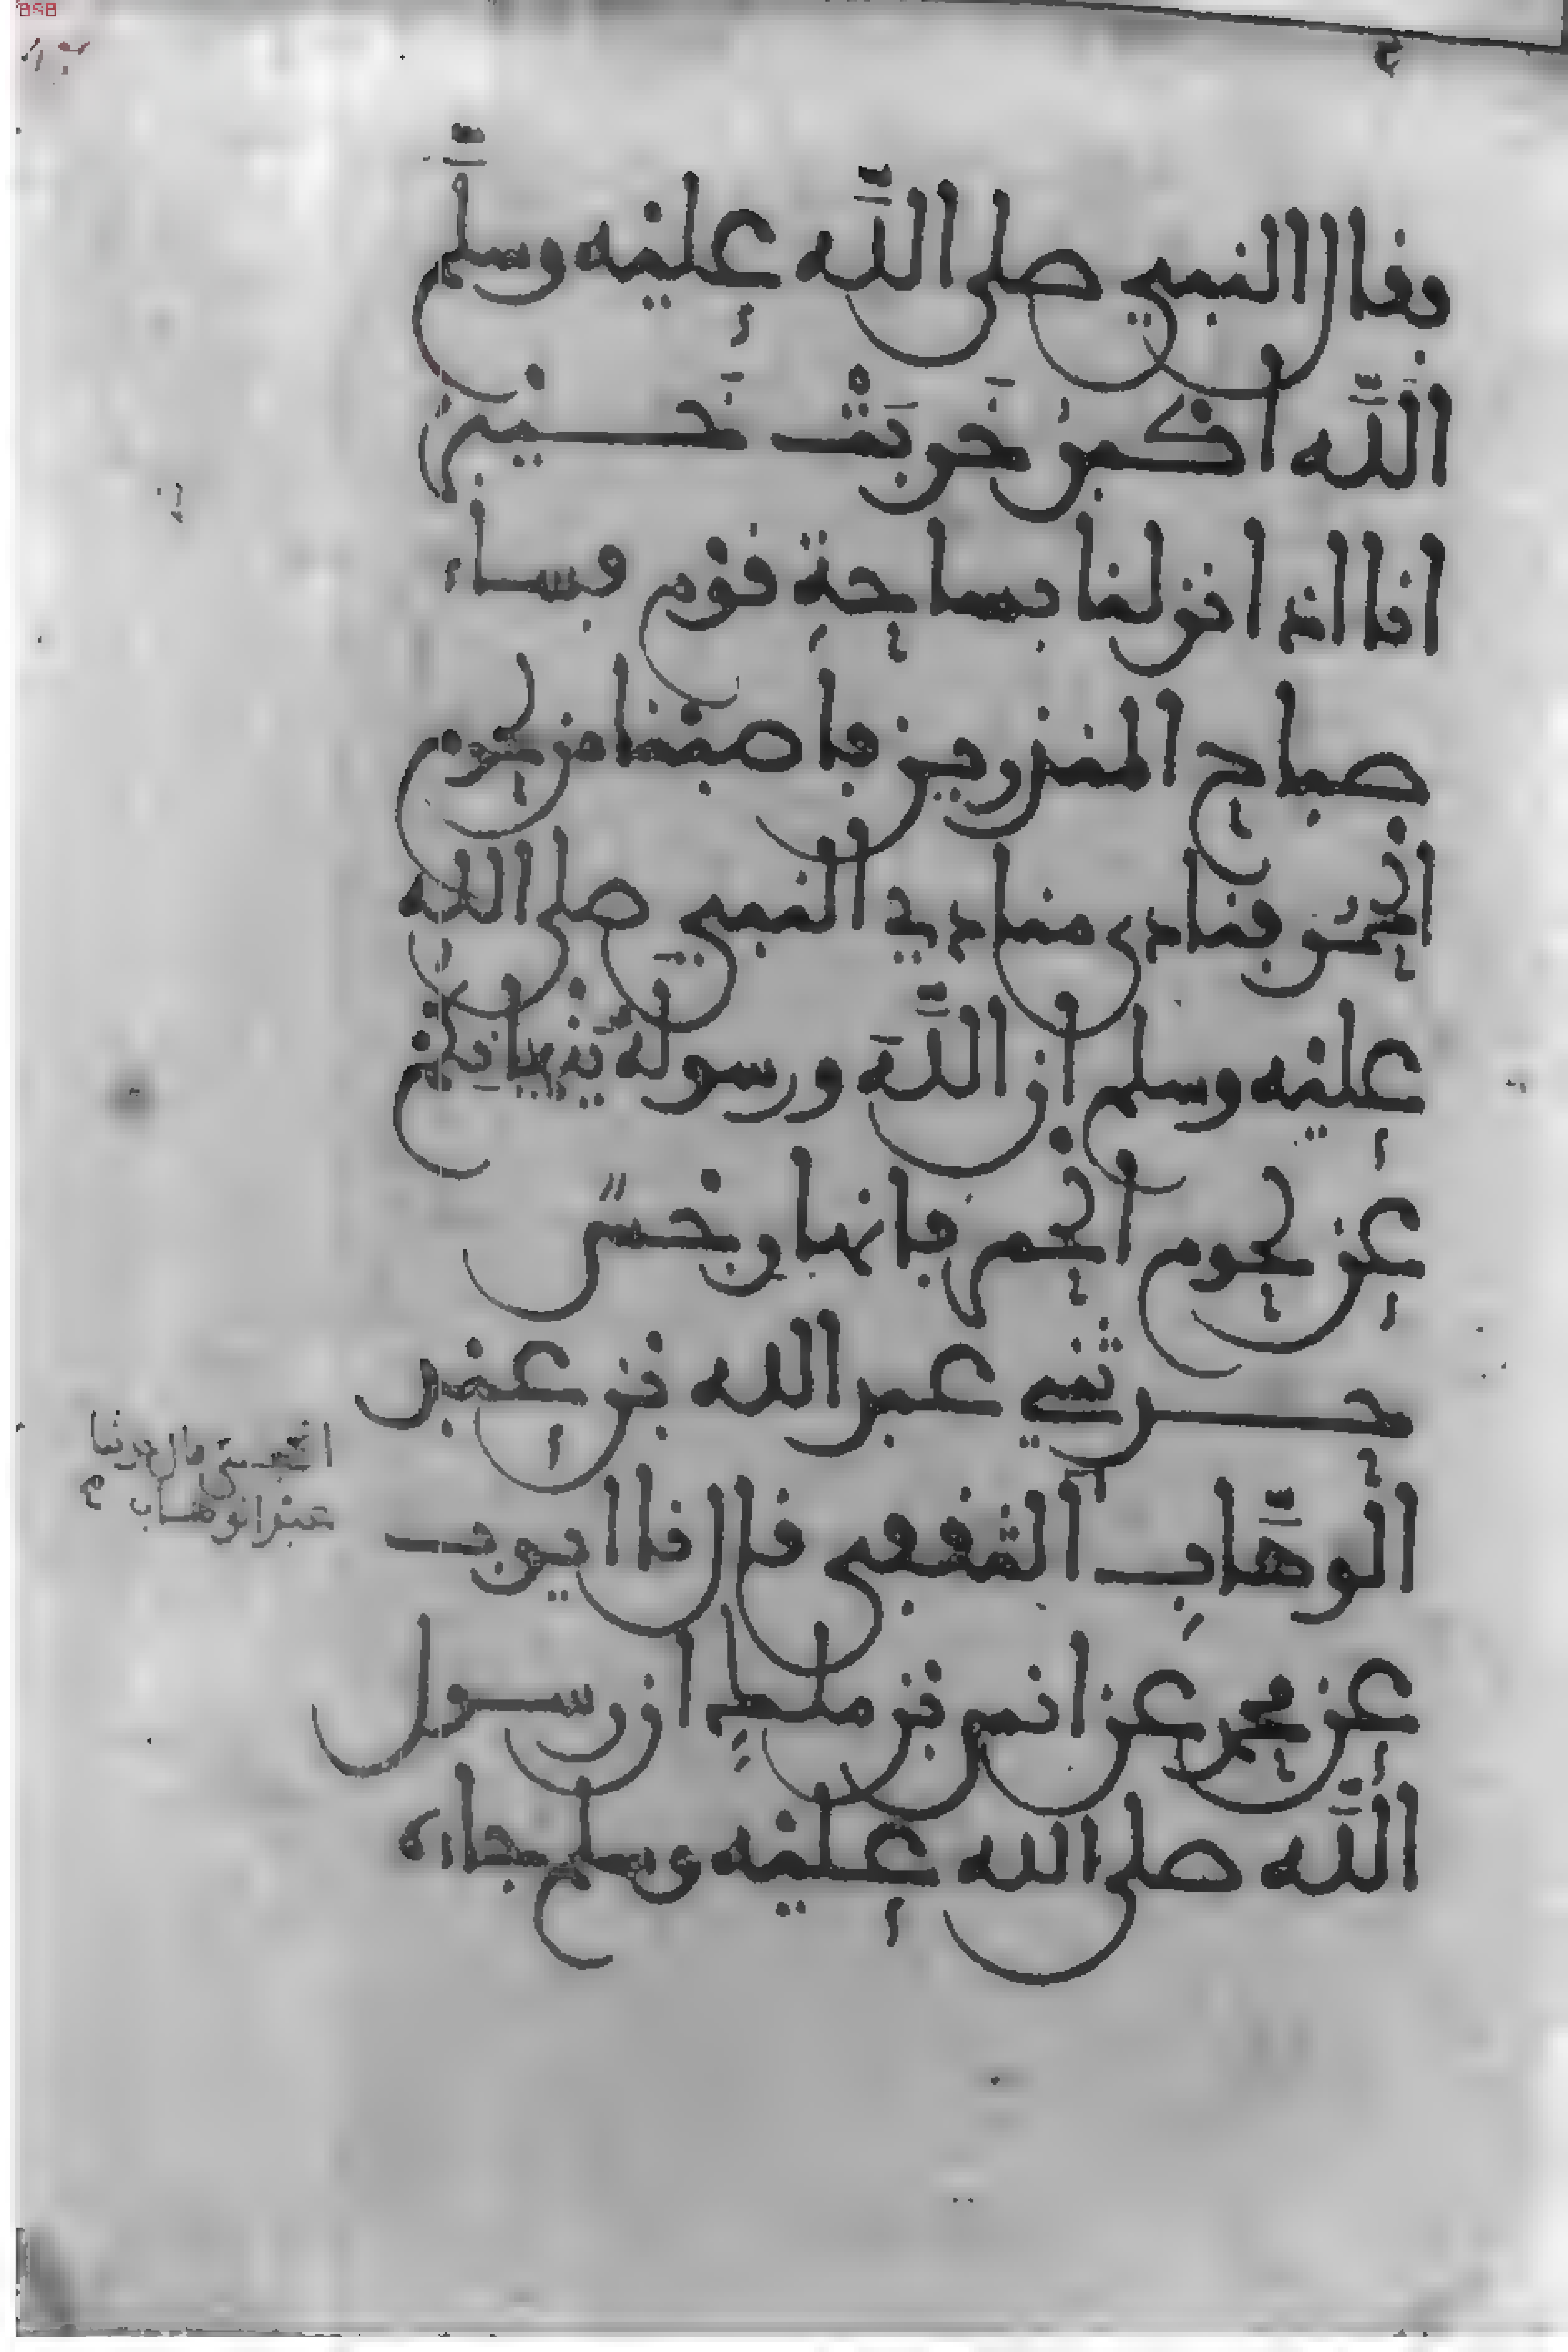 فقال النبي صلى الله عليه وسلم
الله اكبر خَرِبَتْ خيبر
انا اذا نزلنا بساحةِ قوم فساء
صباح المنذرين فاصبنا من لحوم
الحمر فنادى منادي النبي صلى الله
عليه وسلم ان اللهَ ورسوله ينهيانكم
عن لحوم الحمر فانها رجس
حدثني عبد الله بن عبد
الوهَّابِ الثقفي قال نا ايوب
عن محمد عن انس بن ملكٍ ان رسول
الله صلى الله عليه وسلم جاءه
قال حدثنا
عبد الوهاب